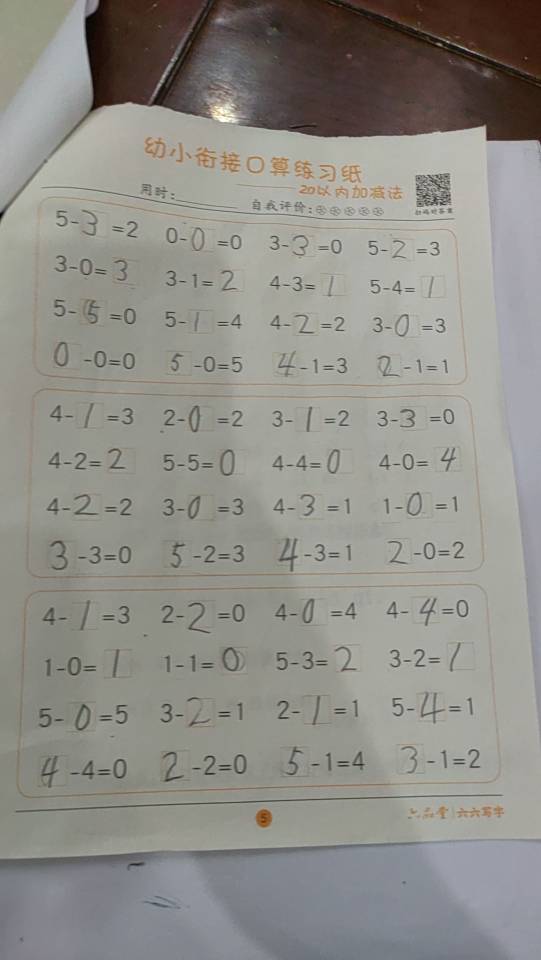 幼小衔接口算练习纸
20以内加减法
用时: 自我评价: 扫码对答案
5-3=2 0-0=0 3-3=0 5-2=3
3-0=3 3-1=2 4-3=1 5-4=1
5-5=0 5-1=4 4-2=2 3-0=3
0-0=0 5-0=5 4-1=3 2-1=1
4-1=3 2-0=2 3-1=2 3-3=0
4-2=2 5-5=0 4-4=0 4-0=4
4-2=2 3-0=3 4-3=1 1-0=1
3-3=0 5-2=3 4-3=1 2-0=2
4-1=3 2-2=0 4-0=4 4-4=0
1-0=1 1-1=0 5-3=2 3-2=1
5-0=5 3-2=1 2-1=1 5-4=1
4-4=0 2-2=0 5-1=4 3-1=2
5
六品堂|六六写字